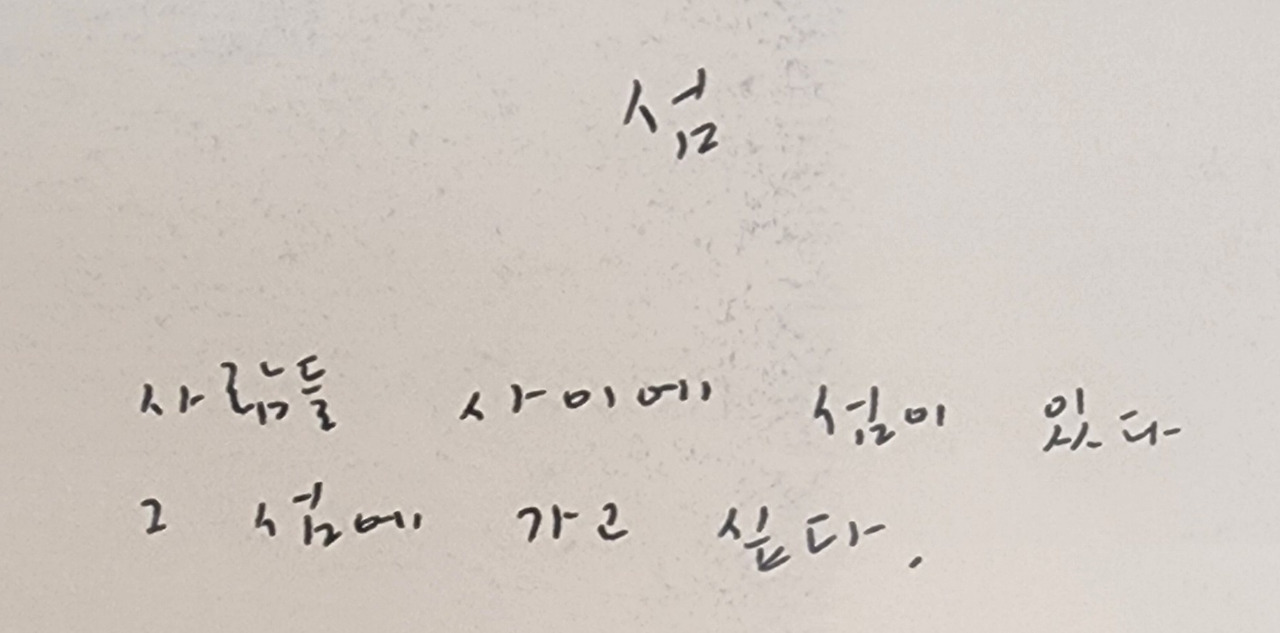 섬
사람들 사이에 섬이 있다
그 섬에 가고 싶다.